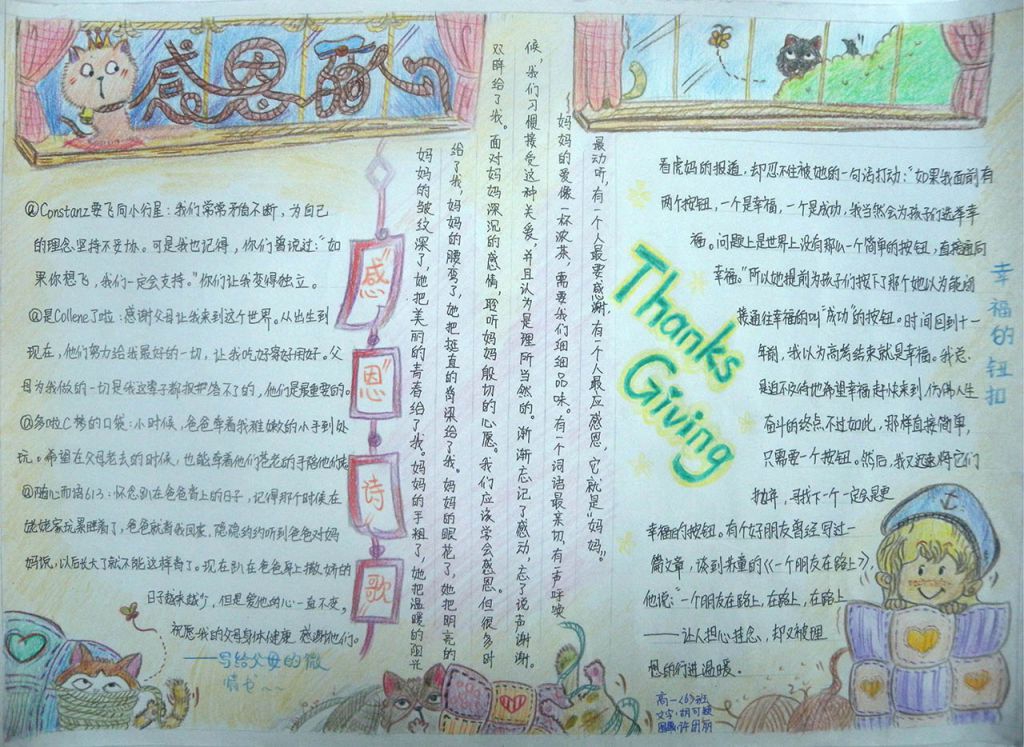 感恩
@Constanz要飞向小行星：我们常常矛盾不断，为自己
的理念坚持不妥协。可是我也记得，你们曾说过：“如
果你想飞，我们一定会支持。”你们让我变得独立。
@是Collene了啦：感谢父母让我来到这个世界。从出生到
现在，他们努力给我最好的一切，让我吃好穿好用好。父
母为我做的一切是我这辈子都报答不了的，他们是最重要的。
@多啦C梦的口袋：小时候，爸爸牵着我稚嫩的小手到处
玩。希望在父母老去的时候，也能牵着他们苍老的手陪他们
@随心而诸613：怀念趴在爸爸背上的日子，记得那个时候在
姥姥家玩累睡着了，爸爸就背我回家，隐隐约约听到爸爸对妈
妈说，以后长大了就不能这样背了。现在趴在爸爸身上撒娇的
日子越来越少，但是爱他的心一直不变。
祝愿我的父母身体健康，感谢他们。
——写给父母的微
情书~~
“感
恩”
诗
歌
妈妈的皱纹深了，她把美丽的青春给了我。妈妈的手粗了，她把温暖的阳光
给了我，妈妈的腰弯了，她把挺直的脊梁给了我。妈妈的眼花了，她把明亮的
双眸给了我。面对妈妈深沉的感情，聆听妈妈殷切的心愿。我们应该学会感恩。但很多时
候，我们习惯接受这种关爱，并且认为是理所当然的。渐渐忘记了感动，忘了说声谢谢。
妈妈的爱像一杯浓茶，需要我们细细品味。有一个词语最亲切，有一声呼唤
最动听，有一个人最要感谢，有一个人最应感恩，它就是“妈妈”。
Thanks
Giving
幸福的钮扣
看虎妈的报道，却忍不住被她的一句话打动：“如果我面前有
两个按钮，一个是幸福，一个是成功，我当然会为孩子们选择幸
福。问题上是世界上没有那么一个简单的按钮，直接通向
幸福。”所以她提前为孩子们按下了那个她以为能通
接通往幸福的叫“成功”的按钮。时间回到十一
年前，我以为高考结束就是幸福。我总
是迫不及待地希望幸福赶快来到，仿佛人生
奋斗的终点不过如此，那样直接简单，
只需要一个按钮。然后，我又迅速将它们
抛弃，寻找下一个一定会是更
幸福的按钮。有个好朋友曾经写过一
篇文章，谈到朱童的《一个朋友在路上》，
他说：“一个朋友在路上，在路上，在路上
——让人担心挂念，却又被理
想的行进温暖。
高一〈6〉班
文字：胡可颖
图画：许